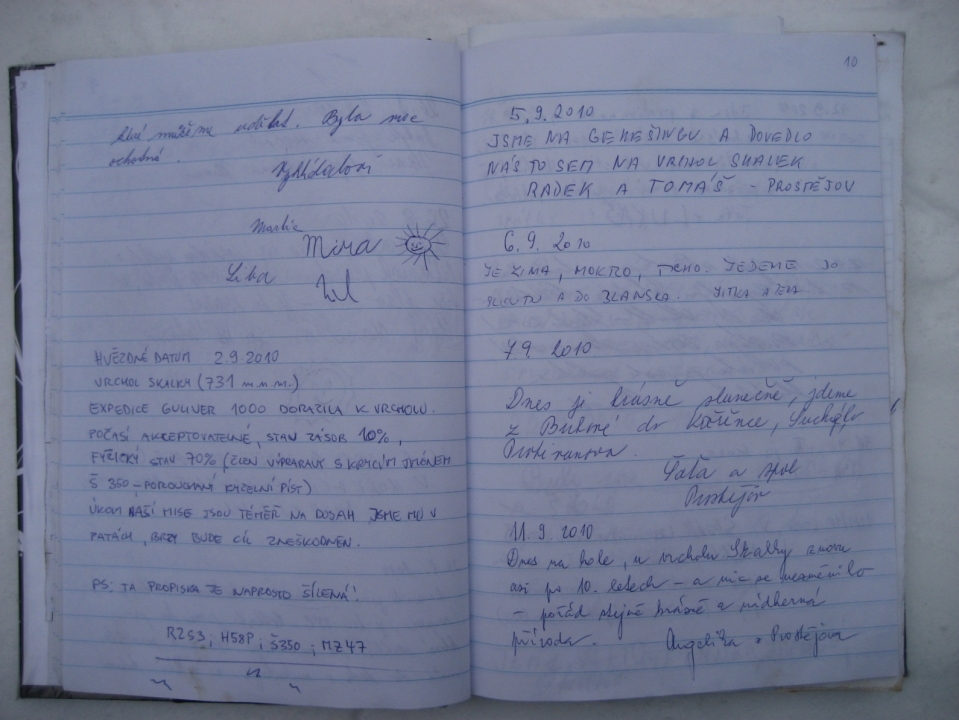 které můžeme udělat. Byla moc
ochotná.
Vyhlídalovi
Martia
Míra
Liba
HVĚZDNÉ DATUM 2.9.2010
VRCHOL SKALKY (731 m.n.m.)
EXPEDICE GULIVER 1000 DORAZILA K VRCHOLU.
POČASÍ AKCEPTOVATELNÉ, STAV ZÁSOB 10%,
FYZICKÝ STAV 70% (ČLEN VÝPRAVY S KRYCÍM JMÉNEM
Š 350 - POROUCHANÝ KYČELNÍ PÍST)
ÚKOLY NAŠÍ MISE JSOU TÉMĚŘ NA DOSAH JSME MU V
PATÁCH, BRZY BUDE CÍL ZNEŠKODNĚN.
PS: TA PROPISKA JE NAPROSTO ŠÍLENÁ!
R2S3; H58P; Š350; MZ47
10
5.9.2010
JSME NA GEMEŠINGU A DOVEDLO
NÁS TO SEM NA VRCHOL SKALEK
RADEK A TOMÁŠ - PROSTĚJOV
6.9. 2010
JE ZIMA, MOKRO, TICHO. JEDEME DO
SLOUPU A DO BLANSKA. JITKA A
7.9. 2010
Dnes je krásně slunečně, jdeme
z Bukové do Kořence, Suchý do
Protivanova.
Táťa a spol
Prostějov
11.9. 2010
Dnes na kole, u vrcholu Skalky znovu
asi po 10. letech - a nic se nezměnilo
- pořád stejně krásně a nádherná
příroda. Angelika z Prostějova